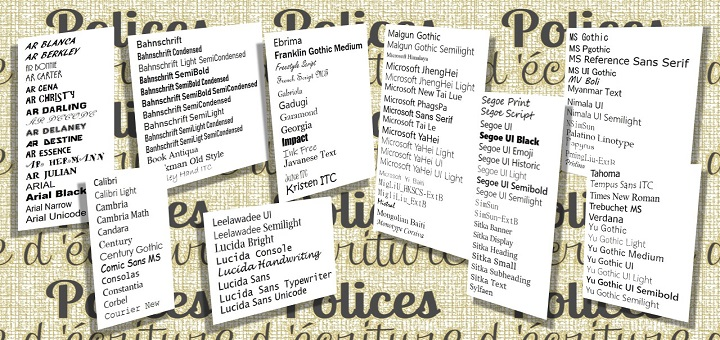 Polices
Polices
Polices
AR BLANCA
AR BERKLEY
AR BONNIE
AR CARTER
AR CENA
AR CHRISTY
AR DARLING
AR DECODE
AR DELANEY
AR DESTINE
AR ESSENCE
AR HERMANN
AR JULIAN
ARIAL
Arial Black
Arial Narrow
Arial Unicode
Bahnschrift
Bahnschrift Condensed
Bahnschrift Light SemiCondensed
Bahnschrift SemiBold
Bahnschrift SemiBold Condensed
Bahnschrift SemiBold SemiCondensed
Bahnschrift SemiCondensed
Bahnschrift SemiLight
Bahnschrift SemiLight Condensed
Bahnschrift SemiLight SemiCondensed
Book Antiqua
Old Style
Hand ITC
Calibri
Calibri Light
Cambria
Cambria Math
Candara
Century
Century Gothic
Comic Sans MS
Consolas
Constantia
Corbel
Courier New
Ebrima
Franklin Gothic Medium
Freestyle Script
French Script MS
Gabriola
Gadugi
Garamond
Georgia
Impact
Ink Free
Javanese Text
Juice ITC
Kristen ITC
Leelawadee UI
Leelawadee Semilight
Lucida Bright
Lucida Console
Lucida Handwriting
Lucida Sans
Lucida Sans Typewriter
Lucida Sans Unicode
Malgun Gothic
Malgun Gothic Semilight
Microsoft Himalaya
Microsoft JhengHei
Microsoft JhengHei Light
Microsoft New Tai Lue
Microsoft PhagsPa
Microsoft Sans Serif
Microsoft Tai Le
Microsoft YaHei
Microsoft YaHei Light
Microsoft YaHei UI
Microsoft YaHei UI Light
Microsoft Yi Baiti
MingLiU_HKSCS-ExtB
MingLiU-ExtB
Mistral
Mongolian Baiti
Monotype Corsiva
Segoe Print
Segoe Script
Segoe UI
Segoe UI Black
Segoe UI Emoji
Segoe UI Historic
Segoe UI Light
Segoe UI Semibold
Segoe UI Semilight
SimSun
SimSun-ExtB
Sitka Banner
Sitka Display
Sitka Heading
Sitka Small
Sitka Subheading
Sitka Text
Sylfaen
MS Gothic
MS Pgothic
MS Reference Sans Serif
MS UI Gothic
MV Boli
Myanmar Text
Nimala UI
Nirmala UI Semilight
NSimSun
Palatino Linotype
Papyrus
PmingLiu-ExtB
Pristina
Tahoma
Tempus Sans ITC
Times New Roman
Trebuchet MS
Verdana
Yu Gothic
Yu Gothic Light
Yu Gothic Medium
Yu Gothic UI
Yu Gothic UI Light
Yu Gothic UI Semibold
Yu Gothic Semilight
Polices
Polices
Polices
e d'écriture d'écriture d'écriture